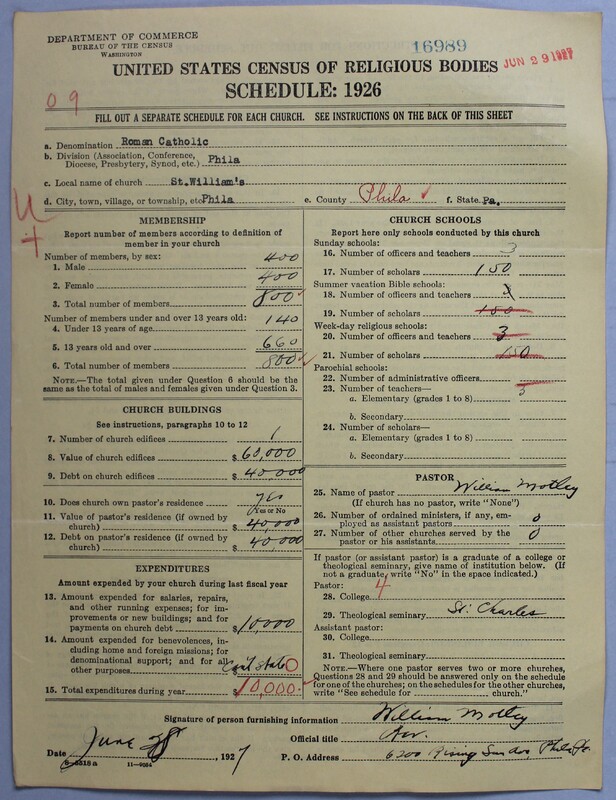 DEPARTMENT OF COMMERCE
BUREAU OF THE CENSUS
WASHINGTON
16989
JUN 29 1927
UNITED STATES CENSUS OF RELIGIOUS BODIES
SCHEDULE: 1926
09
FILL OUT A SEPARATE SCHEDULE FOR EACH CHURCH. SEE INSTRUCTIONS ON THE BACK OF THIS SHEET
a. Denomination Roman Catholic
b. Division (Association, Conference, Diocese, Presbytery, Synod, etc.) Phila
c. Local name of church St.William's
d. City, town, village, or township, etc Phila e. County Phila f. State Pa.
MEMBERSHIP
Report number of members according to definition of member in your church
Number of members, by sex:
1. Male 400
2. Female 400
3. Total number of members 800
Number of members under and over 13 years old:
4. Under 13 years of age 140
5. 13 years old and over 660
6. Total number of members 800
NOTE.—The total given under Question 6 should be the same as the total of males and females given under Question 3.
CHURCH BUILDINGS
See instructions, paragraphs 10 to 12
7. Number of church edifices 1
8. Value of church edifices $ 60,000
9. Debt on church edifices $ 40,000
10. Does church own pastor's residence yes
Yes or No
11. Value of pastor's residence (if owned by church) $ 40,000
12. Debt on pastor's residence (if owned by church) $ 40,000
EXPENDITURES
Amount expended by your church during last fiscal year
13. Amount expended for salaries, repairs, and other running expenses; for improvements or new buildings; and for payments on church debt $ 10,000
14. Amount expended for benevolences, including home and foreign missions; for denominational support; and for all other purposes can't state 0
15. Total expenditures during year $ 10,000.
CHURCH SCHOOLS
Report here only schools conducted by this church
Sunday schools:
16. Number of officers and teachers 3
17. Number of scholars 150
Summer vacation Bible schools:
18. Number of officers and teachers 3
19. Number of scholars 150
Week-day religious schools:
20. Number of officers and teachers 3
21. Number of scholars 150
Parochial schools:
22. Number of administrative officers
23. Number of teachers— 3
a. Elementary (grades 1 to 8)
b. Secondary
24. Number of scholars—
a. Elementary (grades 1 to 8)
b. Secondary
PASTOR
25. Name of pastor William Motley
(If church has no pastor, write "None")
26. Number of ordained ministers, if any, employed as assistant pastors 0
27. Number of other churches served by the pastor or his assistants 0
If pastor (or assistant pastor) is a graduate of a college or theological seminary, give name of institution below. (If not a graduate, write "No" in the space indicated.)
Pastor: 4
28. College
29. Theological seminary St. Charles
Assistant pastor:
30. College
31. Theological seminary
NOTE.—Where one pastor serves two or more churches, Questions 28 and 29 should be answered only on the schedule for one of the churches; on the schedules for the other churches, write "See schedule for church.")
Signature of person furnishing information William Motley
Official title Rev.
Date June 28, 1927 P. O. Address 6200 Rising Sun Ave, Phila Pa.
8—5318 a 11—9034